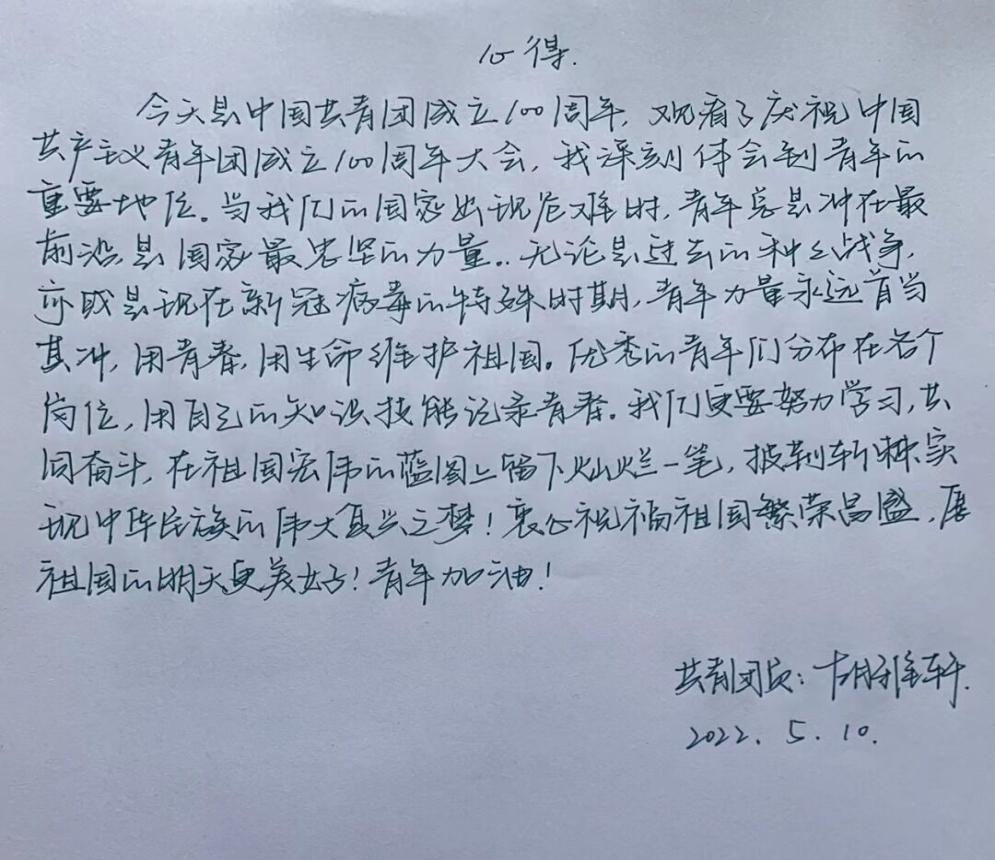 心得.
今天是中国共青团成立100周年,观看了庆祝中国
共产主义青年团成立100周年大会,我深刻体会到青年的
重要地位。当我们的国家出现危难时,青年总是冲在最
前沿,是国家最忠坚的力量..无论是过去的种种战争,
亦或是现在新冠病毒的特殊时期,青年力量永远首当
其冲,用青春,用生命维护祖国。优秀的青年们分布在各个
岗位,用自己的知识技能记录青春。我们更要努力学习,共
同奋斗,在祖国宏伟的蓝图上留下灿烂一笔,披荆斩棘实
现中华民族的伟大复兴之梦!衷心祝福祖国繁荣昌盛,愿
祖国的明天更美好!青年加油!
共青团员:胡雅轩.
2022.5.10.